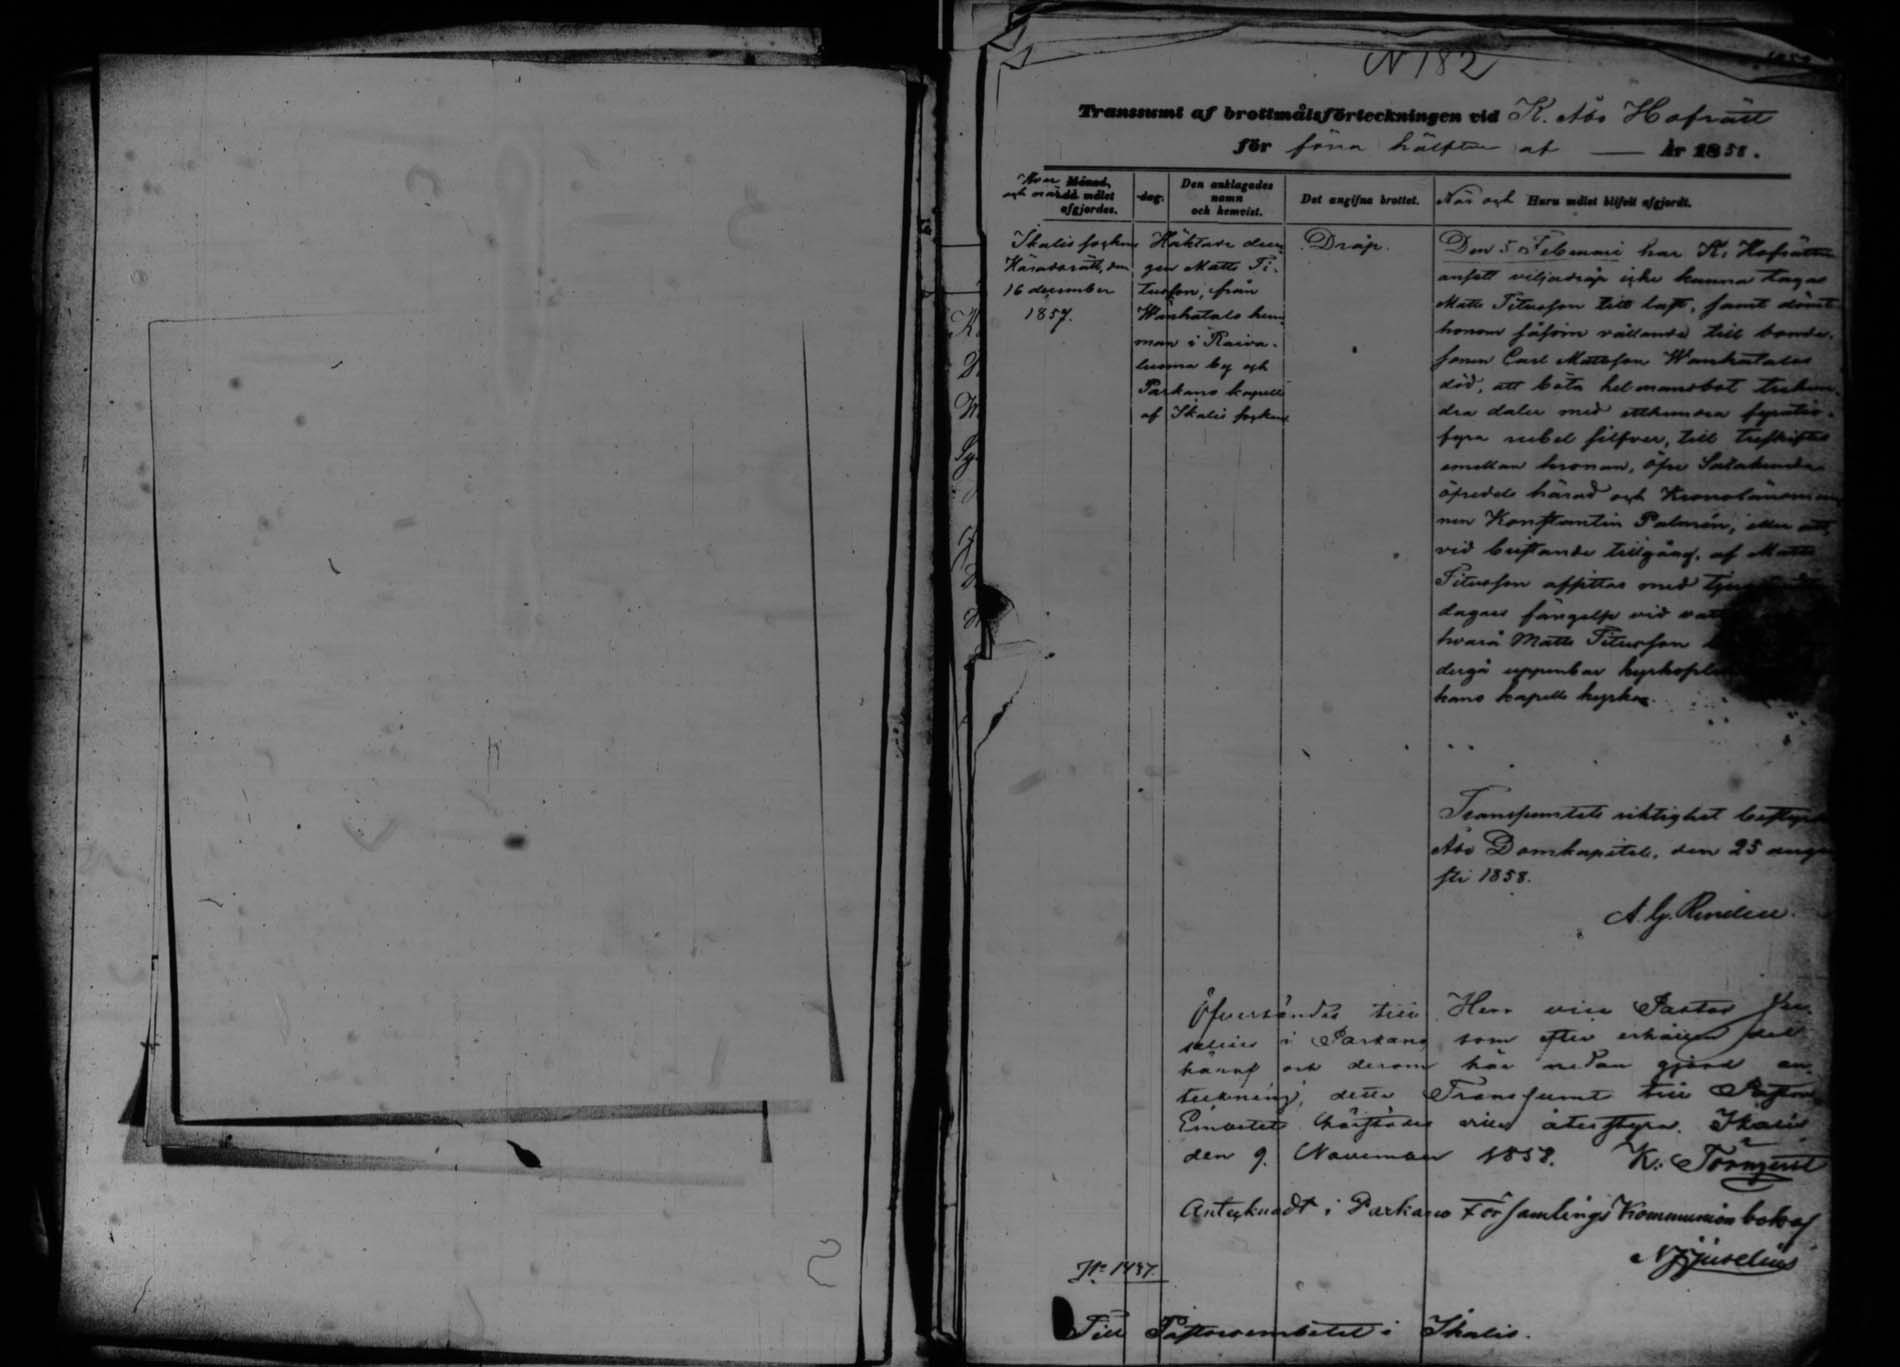 N 182
Transsumt af brottmålsförteckningen vid K. Åbo Hofrätt
för förra hälften af — År 1858.
Hvar och när Månad, då målet afgjordes.
dag.
Den anklagades namn och hemvist.
Det angifna brottet.
När och Huru målet blifvit afgjordt.
Ikalis sockens
Häradsrätt, den
16 december
1857.
Häktade drän-
gen Matts Ti-
tusson, från
Wanhatalo hem-
man i Raiva-
luoma by och
Parkano kapell
af Ikalis socken
Dråp.
Den 5 Februari har K. Hofrätten
ansett viljadråp icke kunna tagas
Matts Titusson till last, samt dömt
honom såsom vållande till bonde-
sonen Carl Mattsson Wanhatalos
död, att böta hel mansbot trehun-
dra daler med etthundra fyratio-
fyra rubel silfver, till treskiftes
emellan kronan, öfre Satakunda
öfredels härad och Kronolänsman-
nen Konstantin Palmén, eller att
vid bristande tillgång, af Matts
Titusson afsittas med
dagars fängelse vid
hvarå Matts Titusson
dergå uppenbar kyrkoplikt
kano kapells kyrka.
Transsumtets riktighet bestyrkt
Åbo Domkapitel, den 25 augu-
sti 1858.
A. G.
Öfversändes till Herr vice Pastor Ju-
selius i Parkano som efter erhållen del
häraf och derom här nedan gjord an-
teckning, detta Transsumt till Pastors
Embetet härstädes ville återstyra. Ikalis
den 9. November 1858. K. Törnqvist
Antecknadt i Parkano Församlings Kommunion bok af
N J Juselius
No 1497.
Till Pastorsembetet i Ikalis.